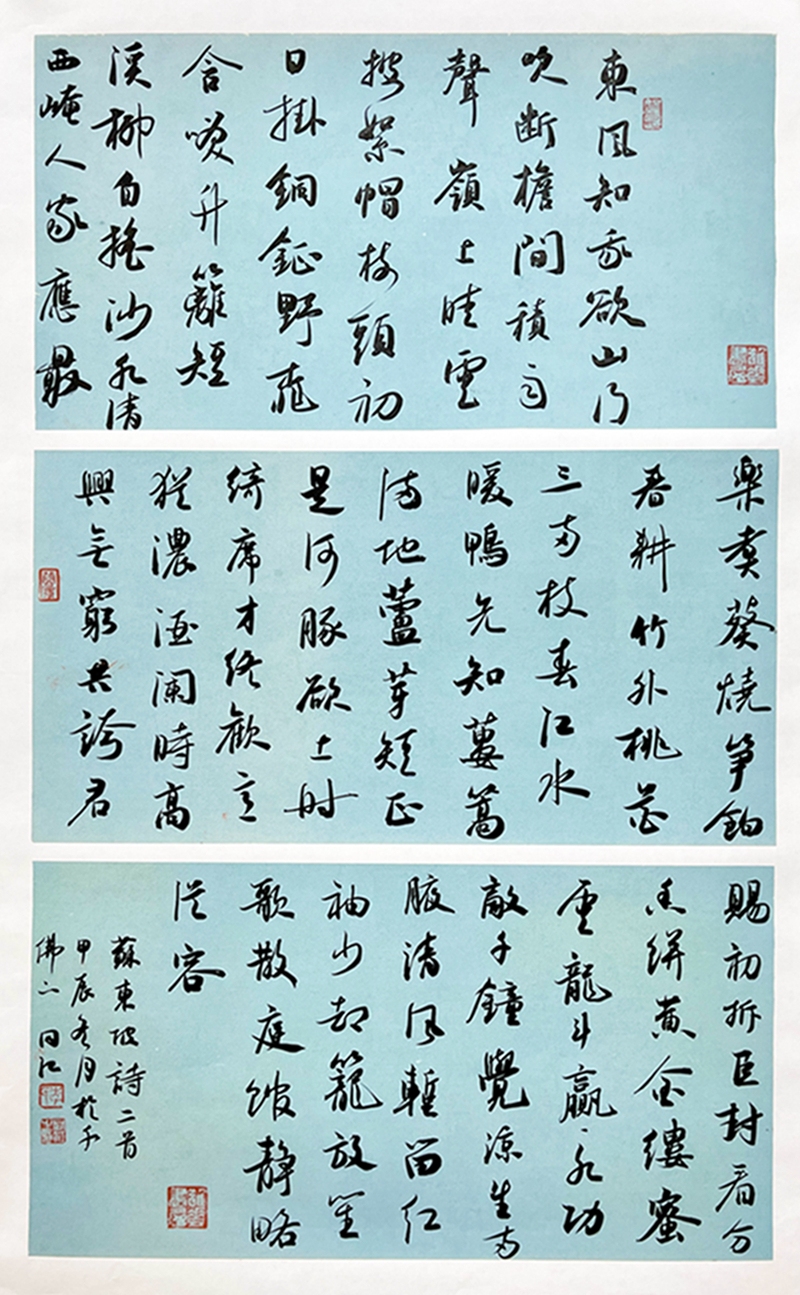 東風知我欲山行
吹斷檐間積雨
聲嶺上晴雲
披絮帽樹頭初
日掛銅鉦野桃
含咲竹籬短
溪柳自搖沙水清
西崦人家應最
樂煮葵燒笋餉
春耕竹外桃花
三兩枝春江水
暖鴨先知蔞蒿
滿地蘆芽短正
是河豚欲上時
綺席才終歡意
猶濃酒闌時高
興無窮共誇君
賜初拆臣封看分
香絣黃金縷蜜
雲龍斗贏一水功
敵千鐘覺涼生兩
腋清風暫留紅
袖少却籠放笙
歌散庭館靜略
從容
蘇東坡詩二首
甲辰冬月於千
佛山 同江